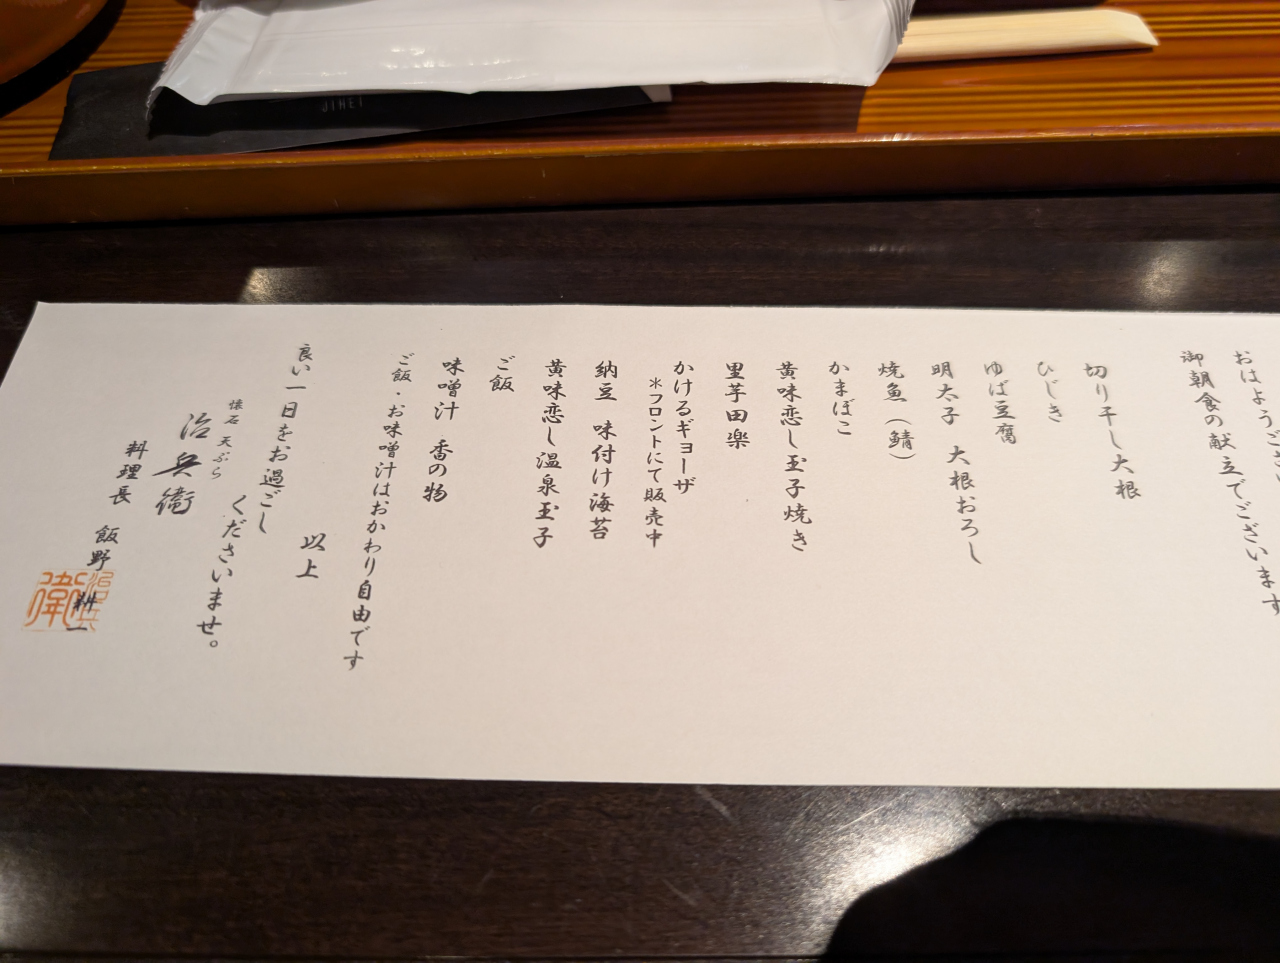 JIHEI
おはようござい
御朝食の献立でございます
切り干し大根
ひじき
ゆば豆腐
明太子 大根おろし
焼魚（鯖）
かまぼこ
黄味恋し玉子焼き
里芋田楽
かけるギョーザ
＊フロントにて販売中
納豆 味付け海苔
黄味恋し温泉玉子
ご飯
味噌汁 香の物
ご飯・お味噌汁はおかわり自由です
以上
良い一日をお過ごし
くださいませ。
懐石 天ぷら
治兵衛
料理長 飯野 耕一
治兵衛